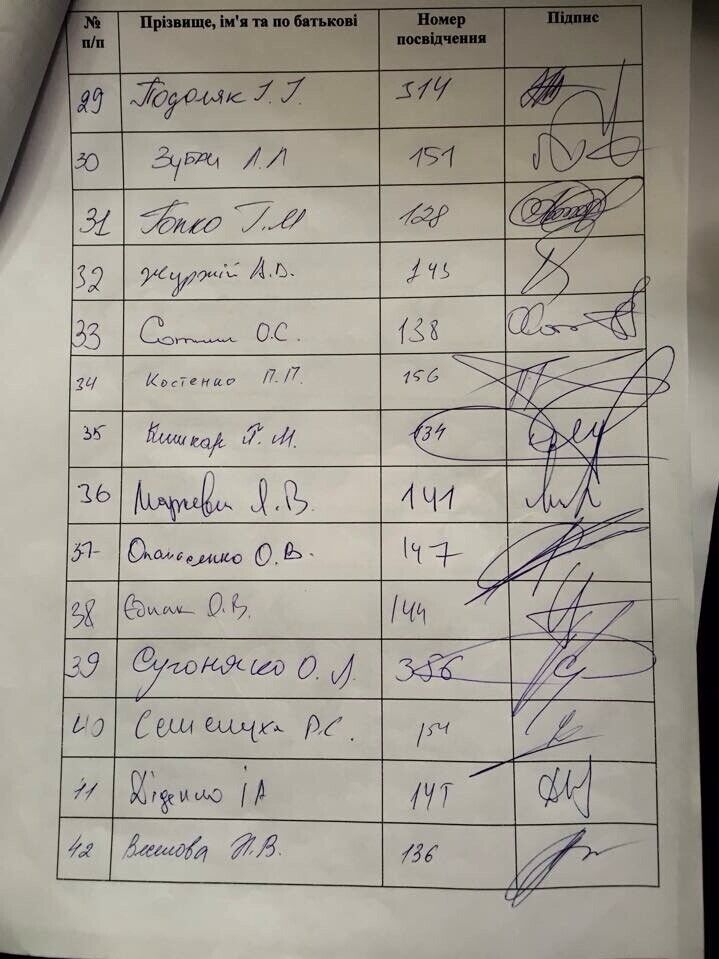 № п/п Прізвище, ім'я та по батькові Номер посвідчення Підпис
29 Подоляк І. І. 314
30 Зубач Л.Л 151
31 Гопко Г.М 128
32 Журжій А.В. 143
33 О.С. 138
34 Костенко П.П. 156
35 Кишкар П. М. 134
36 Маркевич Я.В. 141
37 Опанасенко О.В. 147
38 Єднак О.В. 144
39 Сугоняко О.Л. 356
40 Семенуха Р.С. 154
Діденко І А
42 Н.В. 136